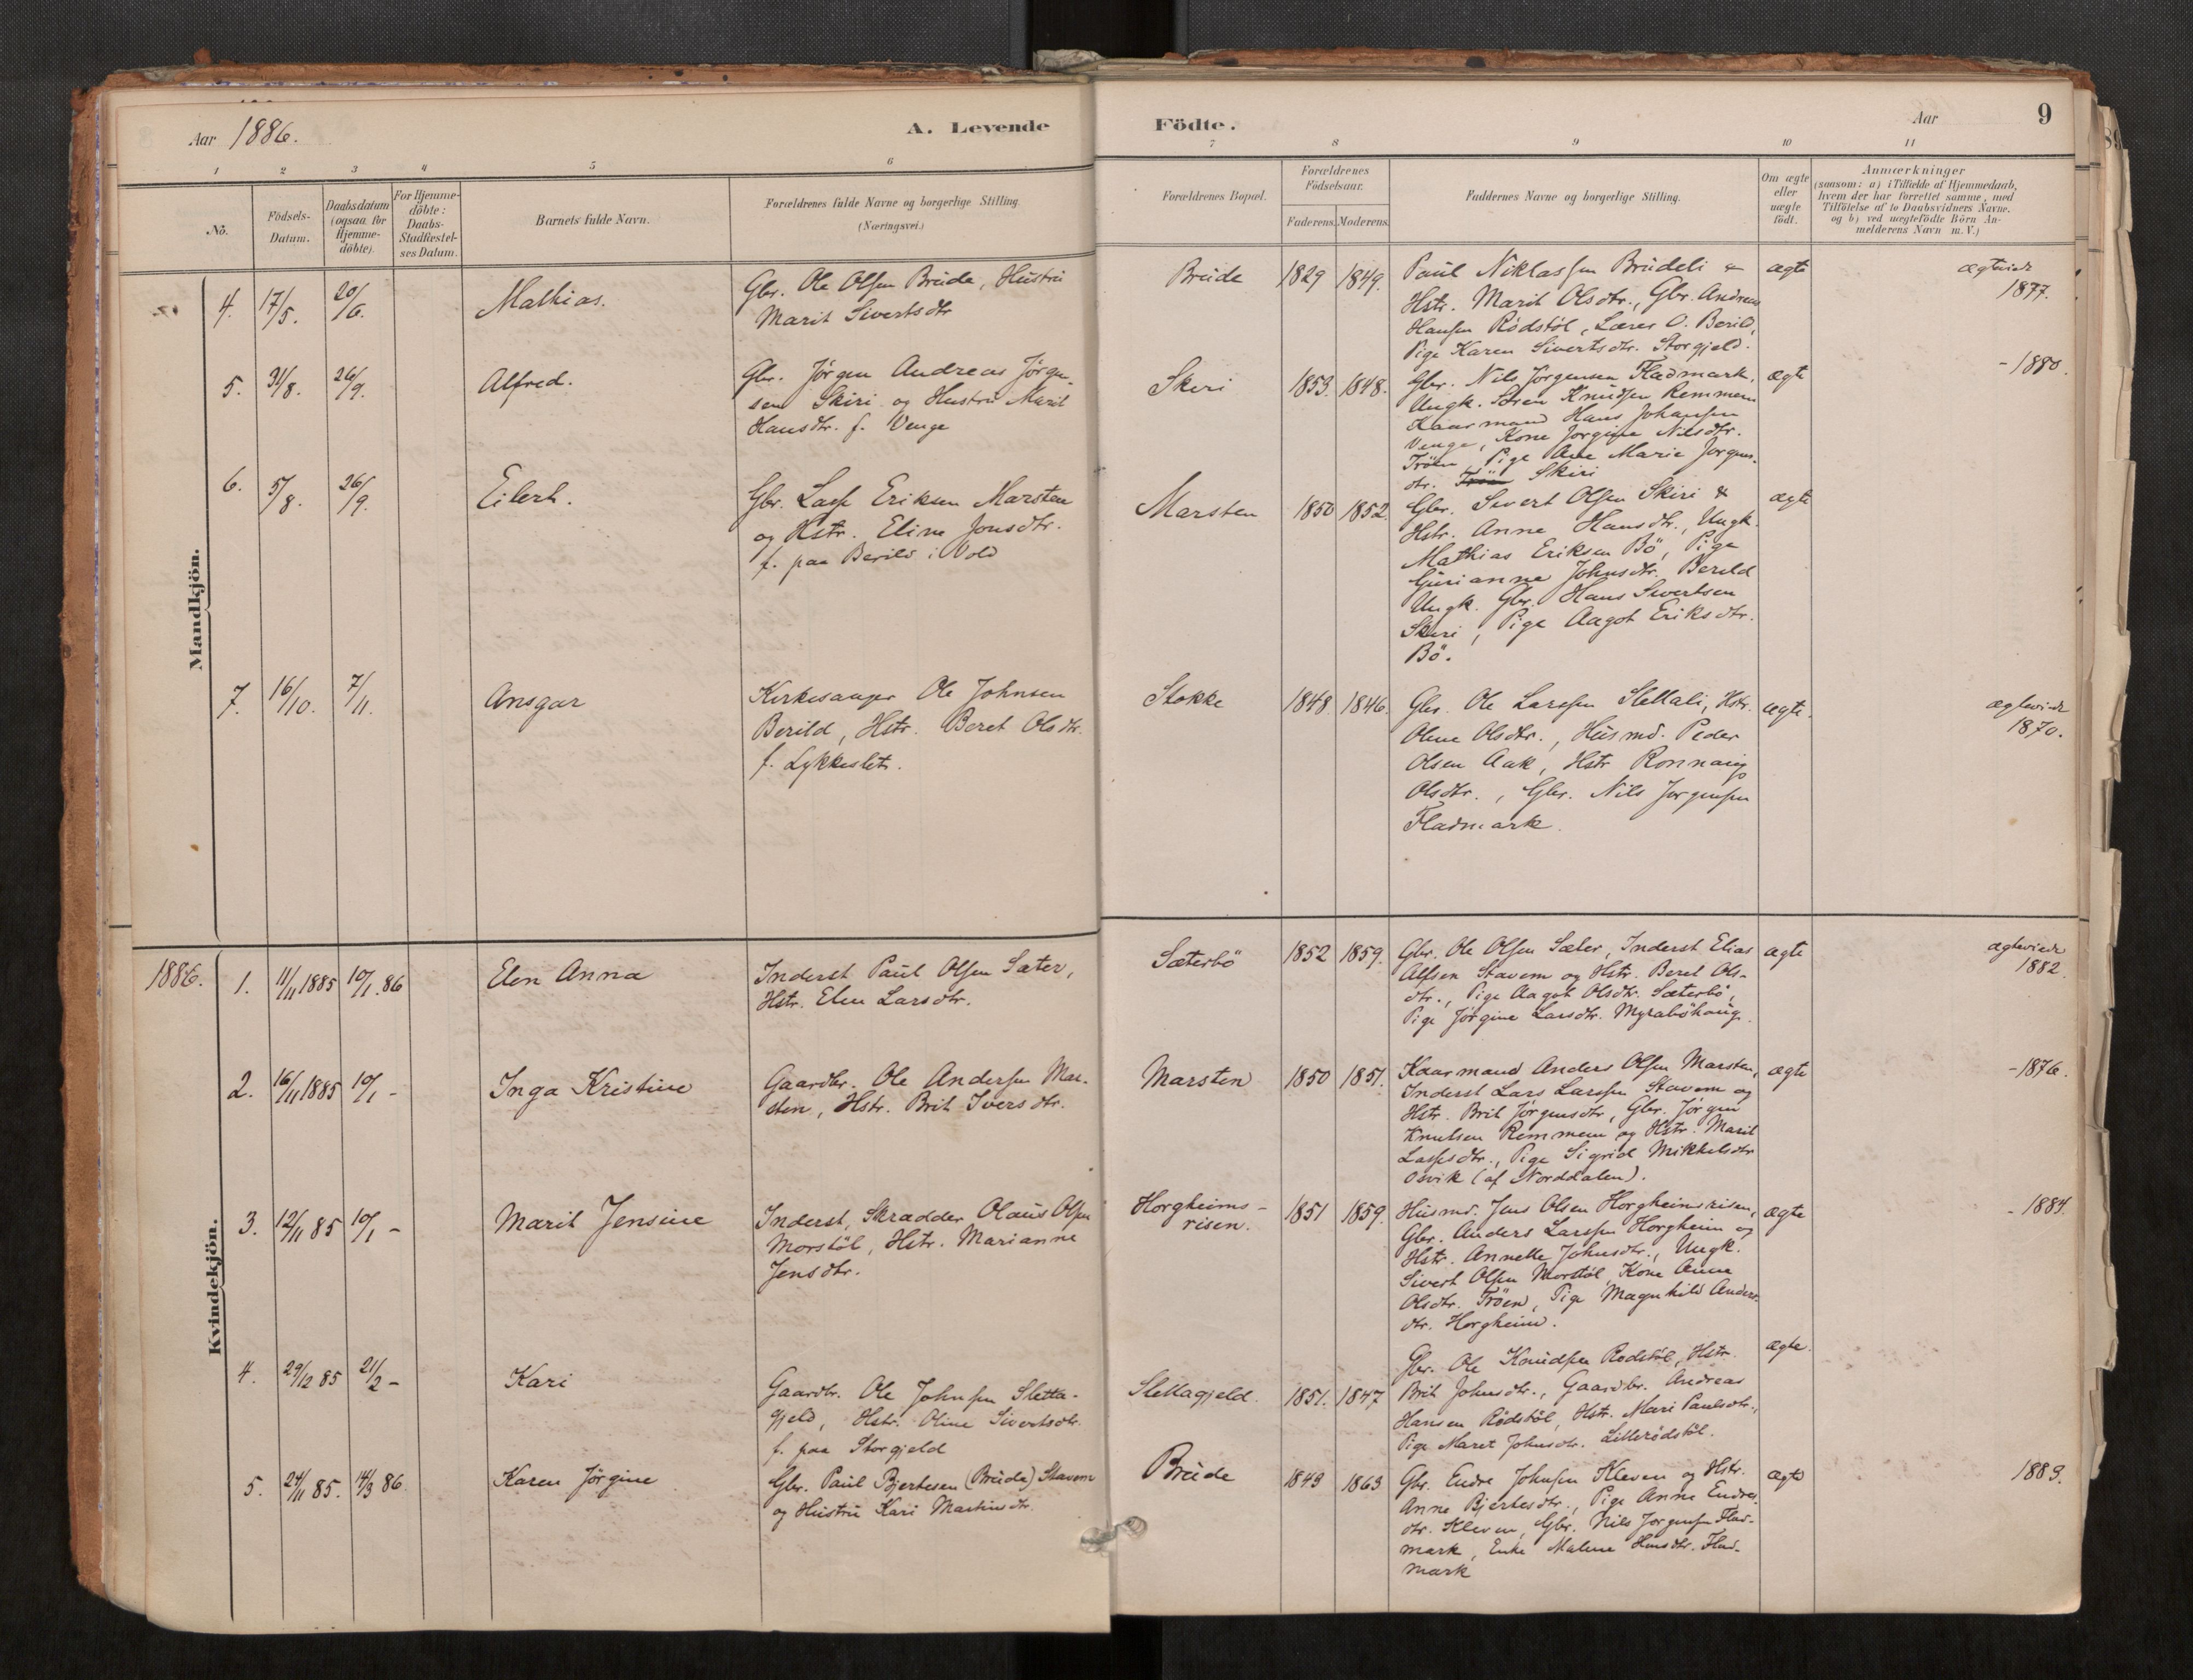 Aar 1886.
A. Levende
Födte.
Aar
9
1
2
3
4
5
6
7
8
9
10
11
No.
Födsels-
Datum.
Daabsdatum
(ogsaa for
Hjemme-
döbte).
For Hjemme-
döbte:
Daabs-
Stadfæstel-
ses Datum.
Barnets fulde Navn.
Forældrenes fulde Navne og borgerlige Stilling.
(Næringsvei.)
Forældrenes Bopæl.
Forældrenes
Födselsaar.
Faderens.
Moderens.
Faddernes Navne og borgerlige Stilling.
Om ægte
eller
uægte
födt.
Anmærkninger
(saasom: a) i Tilfælde af Hjemmedaab,
hvem der har forrettet samme, med
Tilföielse af to Daabsvidners Navne,
og b) ved uægtefödte Börn An-
melderens Navn m. V.)
Mandkjön.
4.
17/5.
20/6.
Mathias.
Gbr. Ole Olsen Brude, Hustru
Marit Sivertsdtr
Brude
1829
1849.
Paul Niklassen Brudeli &
Hstr. Marit Olsdtr., Gbr. Andreas
Hansen Rödstöl, Lærer O. Berild,
Pige Karen Sivertsdtr. Storgjeld.
ægte
ægteviede
1877.
5.
31/8.
26/9.
Alfred.
Gbr. Jörgen Andreas Jörgen-
sen Skiri og Hustru Marit
Hansdtr. f. Venge
Skiri
1853.
1848.
Gbr. Nils Jörgensen Fladmark,
Ungk. Sören Knudsen Remmem
Kaarmand Hans Johansen
Venge, Kone Jorgine Nilsdtr.
Tröen, Pige Ane Marie Jorgens-
dtr. Tröen Skiri
ægte
- 1880.
6.
5/8.
26/9.
Eilert.
Gbr. Lasse Eriksen Marsten
og Hstr. Eline Jonsdtr.
f. paa Berild i Vold
Marsten
1850
1852.
Gbr. Sivert Olsen Skiri &
Hstr. Anne Hansdtr., Ungk.
Mathias Eriksen Bö, Pige
Gurianna Johnsdtr. Berild
Ungk. Gbr. Hans Sivertsen
Skiri, Pige Aagot Eriksdtr.
Bö.
ægte
7.
16/10.
7/11.
Ansgar
Kirkesanger Ole Johnsen
Berild, Hstr. Beret Olsdtr.
f. Lykkeslet.
Stokke
1848
1846.
Gbr. Ole Larssen Slettali, Hstr.
Olene Olsdtr., Husmd. Peder
Olsen Aak, Hstr Ronnaug
Olsdtr., Gbr. Nils Jorgensen
Fladmark.
ægte.
ægteviede
1870.
1886.
Kvindekjön.
1.
11/11 1885
10/1. 86
Elen Anna
Inderst Paul Olsen Sæter,
Hstr. Elen Larsdtr.
Sæterbö
1852
1859.
Gbr. Ole Olsen Sæter, Inderst Elias
Alfsen Stavem og Hstr. Beret Ols-
dtr., Pige Aagot Olsdtr. Sæterbö,
Pige Jörgine Larsdtr. Myraböhaug.
ægte
ægteviede
1882.
2.
16/11 1885
10/1 -
Inga Kristine
Gaardbr. Ole Andersen Mar-
sten, Hstr. Brit Iversdtr.
Marsten
1850
1851.
Kaarmand Anders Olsen Marsten,
Inderst Lars Larssen Stavem og
Hstr. Brit Jörgensdtr, Gbr. Jörgen
Knutsen Remmem og Hstr. Marit
Lassesdtr., Pige Sigrid Mikkelsdtr
Osvik (af Norddalen).
ægte
- 1876.
3.
12/11 85
10/1 -
Marit Jensine
Inderst, Skrædder Olaus Olsen
Morstöl, Hstr. Marianne
Jensdtr.
Horgheims-
risen.
1851
1859.
Husmd. Jens Olsen Horgheimsrisen,
Gbr. Anders Larssen Horgheim og
Hstr. Annette Johnsdtr., Ungk.
Sivert Olsen Morstöl, Kone Anne
Olsdtr. Tröen, Pige Magnhild Anders-
dtr. Horgheim.
ægte
- 1884.
4.
29/12 85
21/2 -
Kari
Gaardbr. Ole Johnsen Sletta-
gjeld, Hstr. Oline Sivertsdtr.
f. paa Storgjeld
Slettagjeld.
1851.
1847
Gbr. Ole Knudsen Rodstöl, Hstr.
Brit Johnsdtr., Gaardbr. Andreas
Hansen Rödstöl, Hstr. Mari Paulsdtr.,
Pige Maret Johnsdtr. Lillerödstöl.
ægte.
5.
24/11 85.
14/3 86.
Karen Jörgine
Gbr. Paul Bjertesen (Brude) Stavem
og Hustru Kari Martinsdtr.
Brude
1843
1863
Gbr. Endre Johnsen Kleven og Hstr.
Anne Bjertesdtr., Pige Anne Endres-
dtr. Kleven, Gbr. Nils Jorgensen Flad-
mark, Enke Malene Hansdtr. Flad-
mark
ægte
1883.